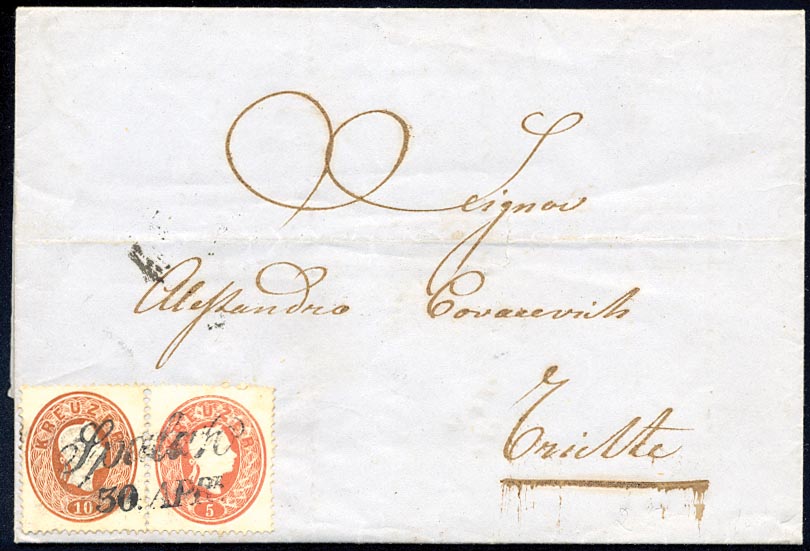 Signor
Alessandro Covacevich
Trieste
KREUZER KREUZER
30. APR.
10 5